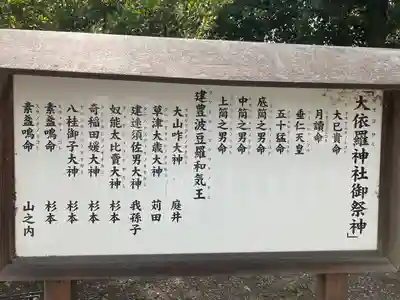 「大依羅神社御祭神」
大己貴命
月讀命
垂仁天皇
五十猛命
底筒之男命
中筒之男命
上筒之男命
建豊波豆羅和気王
大山咋大神 庭井
草津大歳大神 苅田
建速須佐男大神 我孫子
奴能太比賣大神 杉本
奇稲田媛大神 杉本
八柱御子大神 杉本
素盞鳴命 杉本
素盞鳴命 山之内